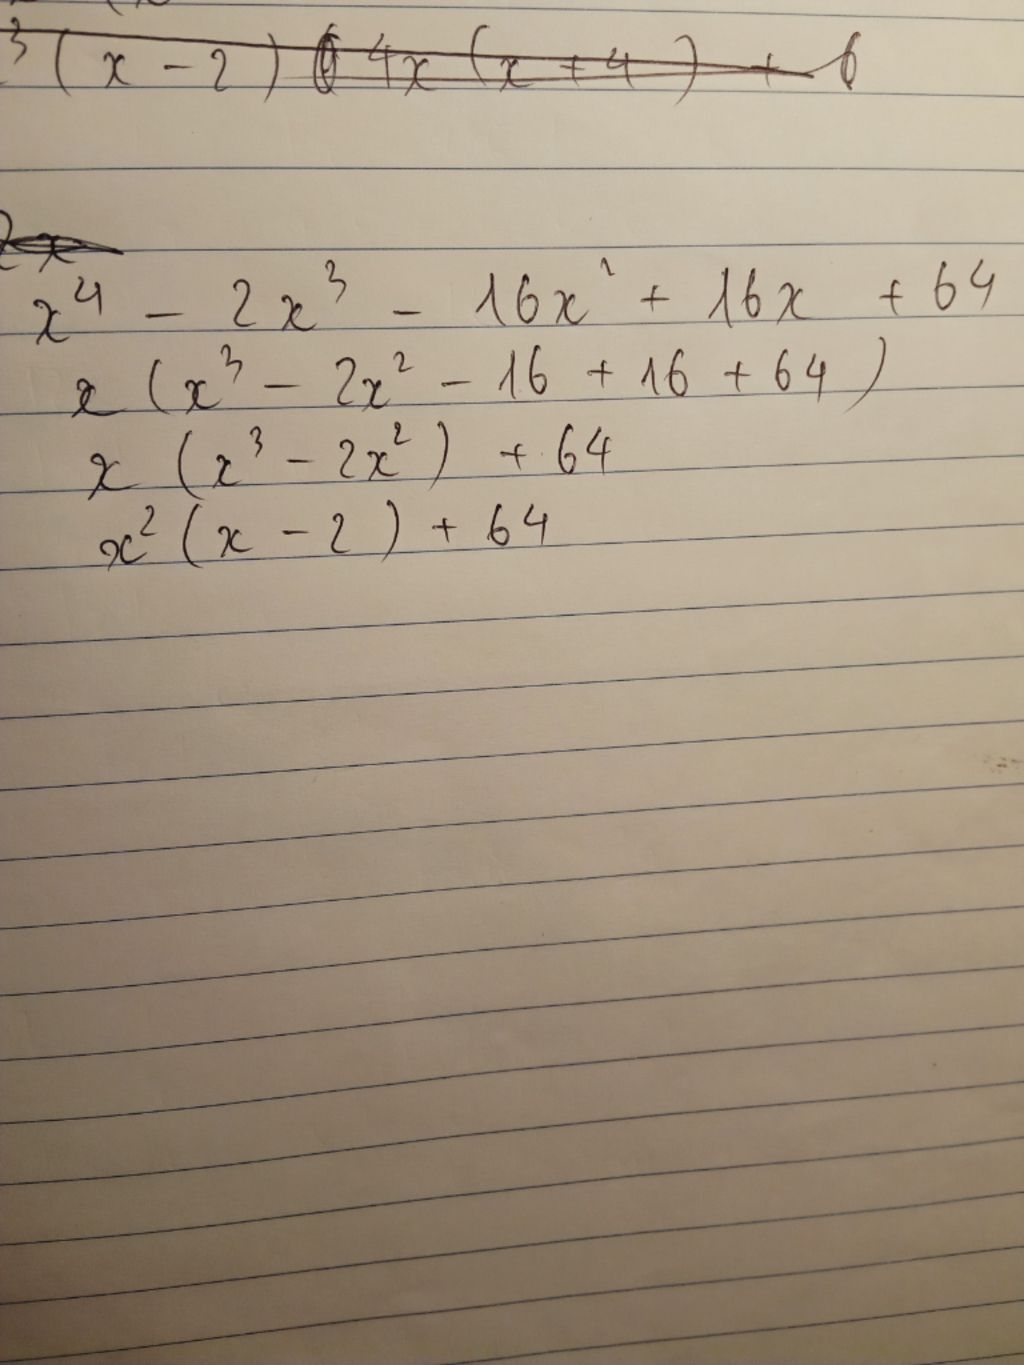 ³(x - 2) 4x (x + 4) + 6
2x
x⁴ - 2x³ - 16x² + 16x + 64
x (x³ - 2x² - 16 + 16 + 64)
x (x³ - 2x²) + 64
x² (x - 2) + 64